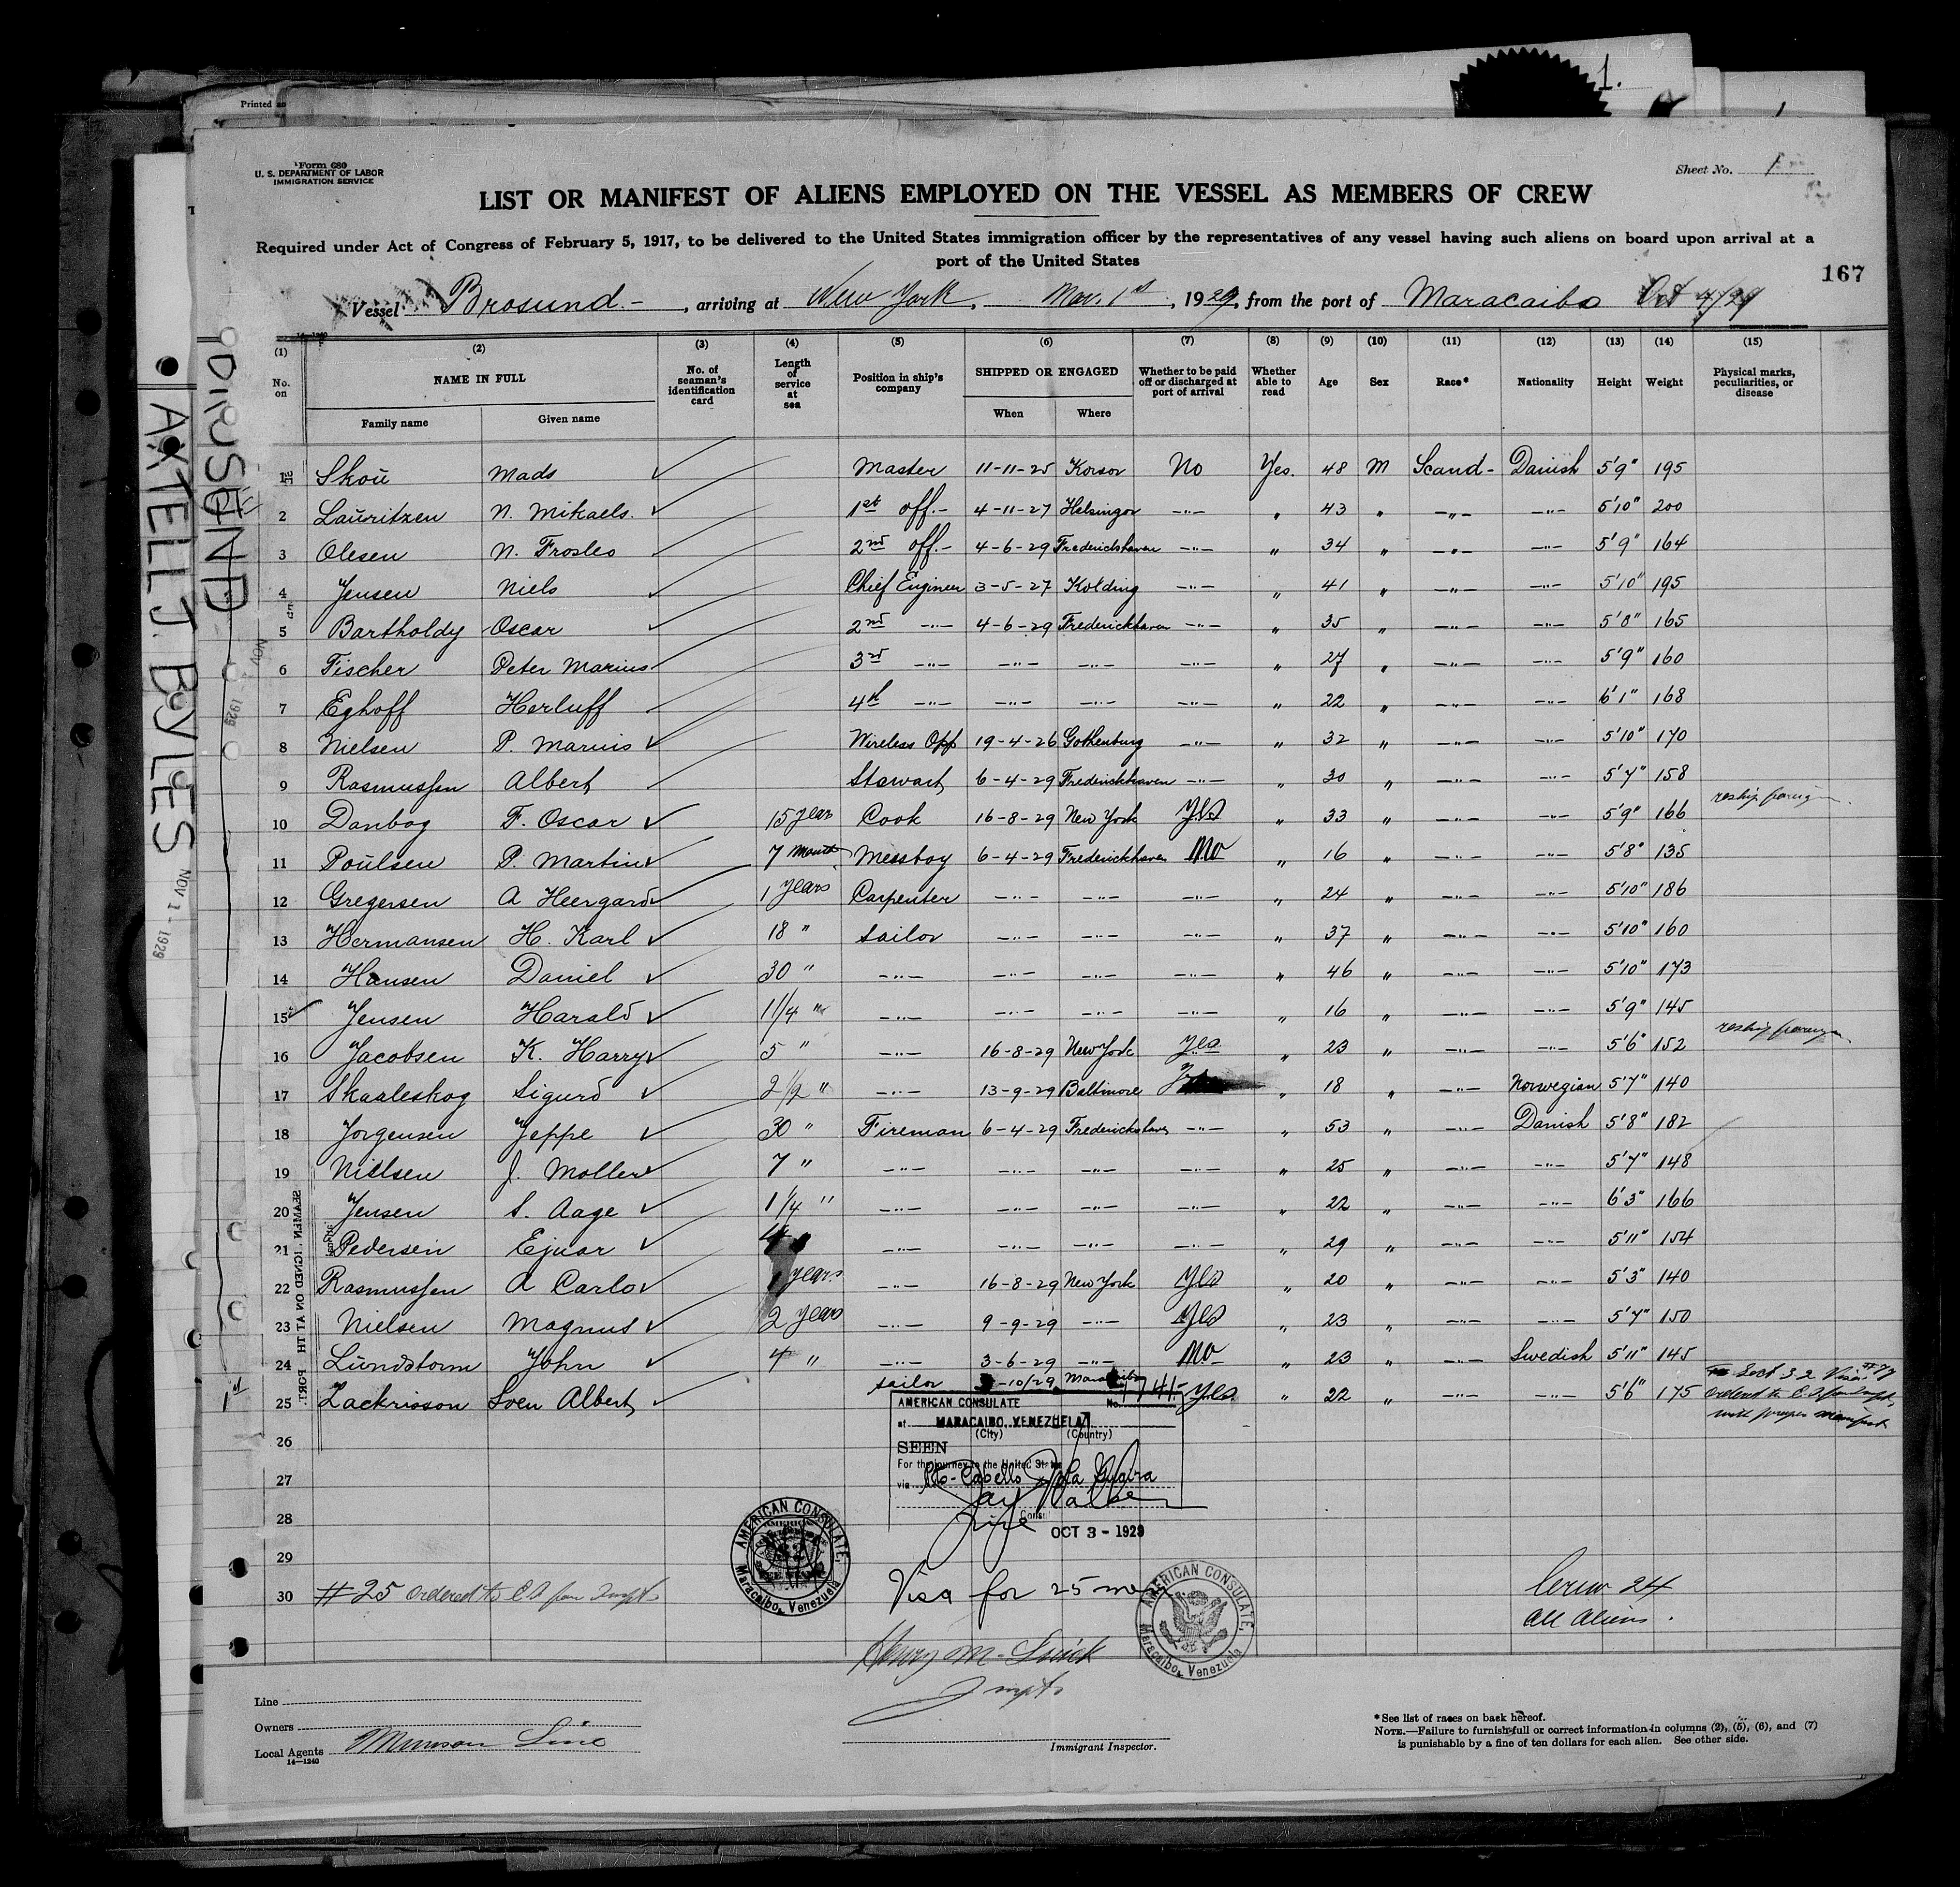 1.
Printed
Form 680
U. S. DEPARTMENT OF LABOR
IMMIGRATION SERVICE
Sheet No. 1
LIST OR MANIFEST OF ALIENS EMPLOYED ON THE VESSEL AS MEMBERS OF CREW
Required under Act of Congress of February 5, 1917, to be delivered to the United States immigration officer by the representatives of any vessel having such aliens on board upon arrival at a
port of the United States
167
Vessel Brosund.-, arriving at New York, Nov. 1st, 1929, from the port of Maracaibo Oct 4/29
14-1240
(1) (2) (3) (4) (5) (6) (7) (8) (9) (10) (11) (12) (13) (14) (15)
No. on NAME IN FULL No. of seaman's identification card Length of service at sea Position in ship's company SHIPPED OR ENGAGED Whether to be paid off or discharged at port of arrival Whether able to read Age Sex Race* Nationality Height Weight Physical marks, peculiarities, or disease
Family name Given name When Where
1 Skou Mads Master 11-11-25 Korsor No Yes. 48 M Scand- Danish 5'9" 195
2 Lauritzen N. Mikaels. 1st off.- 4-11-27 Helsingor -"- " 43 " -"- -"- 5'10" 200
3 Olesen N. Frosleo 2nd off.- 4-6-29 Frederickshaven -"- " 34 " -"- -"- 5'9" 164
4 Jensen Niels Chief Engineer 3-5-27 Kolding -"- " 41 " -"- -"- 5'10" 195
5 Bartholdy Oscar 2nd -"- 4-6-29 Frederickhaven -"- " 35 " -"- -"- 5'8" 165
6 Fischer Peter Marius 3rd -"- -"- -"- -"- " 27 " -"- -"- 5'9" 160
7 Eghoff Herluff 4th -"- -"- -"- -"- " 22 " -"- -"- 6'1" 168
8 Nielsen P. Marius Wireless Opp 19-4-26 Gothenburg -"- " 32 " -"- -"- 5'10" 170
9 Rasmussen Albert Stewart 6-4-29 Frederickhaven -"- " 30 " -"- -"- 5'7" 158
10 Danbog F. Oscar 15 years Cook 16-8-29 New York Yes " 33 " -"- -"- 5'9" 166 reship foreign
11 Poulsen P. Martin 7 Month Messboy 6-4-29 Frederickhaven No " 16 " -"- -"- 5'8" 135
12 Gregersen A Heergard 1 years Carpenter -"- -"- -"- " 24 " -"- -"- 5'10" 186
13 Hermansen H. Karl 18 " sailor -"- -"- -"- " 37 " -"- -"- 5'10" 160
14 Hansen Daniel 30 " -"- -"- -"- -"- " 46 " -"- -"- 5'10" 173
15 Jensen Harald 1 1/4 " -"- -"- -"- -"- " 16 " -"- -"- 5'9" 145
16 Jacobsen K. Harry 5 " -"- 16-8-29 New York Yes " 23 " -"- -"- 5'6" 152 reship foreign
17 Skaaleskog Sigurd 2 1/2 " -"- 13-9-29 Baltimore " 18 " -"- Norwegian 5'7" 140
18 Jorgensen Jeppe 30 " Fireman 6-4-29 Frederickshaven -"- " 53 " -"- Danish 5'8" 182
19 Nielsen J. Moller 7 " -"- -"- -"- -"- " 25 " -"- -"- 5'7" 148
20 Jensen S. Aage 1 1/4 " -"- -"- -"- -"- " 22 " -"- -"- 6'3" 166
21 Pedersen Ejnar 4 -"- -"- -"- -"- " 29 " -"- -"- 5'11" 154
22 Rasmussen A Carlo 1 years -"- 16-8-29 New York Yes " 20 " -"- -"- 5'3" 140
23 Nielsen Magnus 2 years -"- 9-9-29 -"- Yes " 23 " -"- -"- 5'7" 150
24 Lundstorm John 4 " -"- 3-6-29 -"- No " 23 " -"- Swedish 5'11" 145
25 Zackrisson Sven Albert sailor -10/29 Maracaibo Yes " 22 " -"- -"- 5'6" 175 Sect 32 Visa
ordered to
with proper manifest
1st
26
27
28
29
30 #25 ordered to
AMERICAN CONSULATE No. 1741-
at MARACAIBO, VENEZUELA
(City) (Country)
SEEN
For the journey to the United States
via Pto-Cabello La Guaira
Jay Walker
Vice Consul
OCT 3 - 1929
Visa for 25 men
AMERICAN CONSULATE, Maracaibo, Venezuela
AMERICAN CONSULATE, Maracaibo, Venezuela
Crew 24
All Aliens.
Henry M.
Line
Owners
Local Agents Munson Line
14-1240
Immigrant Inspector.
*See list of races on back hereof.
NOTE.—Failure to furnish full or correct information in columns (2), (5), (6), and (7)
is punishable by a fine of ten dollars for each alien. See other side.
AXTELL J. BYLES
NOV 1 - 1929
NOV 1929
SEAMEN SIGNED ON AT TH PORT.